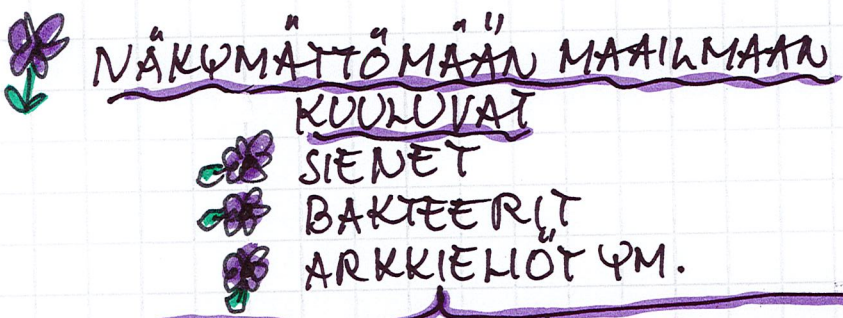 NÄKYMÄTTÖMÄÄN MAAILMAAN
KUULUVAT
SIENET
BAKTEERIT
ARKKIELIÖT YM.